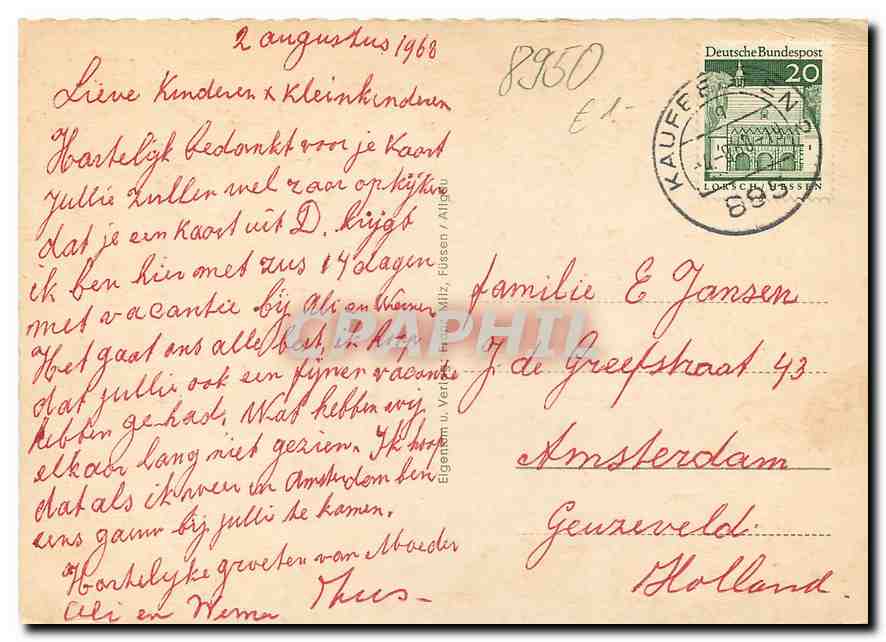 2 augustus 1968
Lieve Kinderen x Kleinkinderen
Hartelijk bedankt voor je Kaart
Jullie zullen wel raar opkijken
dat je een kaart uit D. krijgt
ik ben hier met zus 14 dagen
met vacantie bij Ali en Werner
Het gaat ons alle best, ik hoop
dat jullie ook een fijner vacantie
hebben gehad. Wat hebben wij
elkaar lang niet gezien. Ik hoop
dat als ik weer in Amsterdam ben
eens gauw bij jullie te komen.
Hartelijke groeten van Moeder
Ali en Werner
8950
€ 1-
Deutsche Bundespost
20
LORSCH/HESSEN
KAUFBEUREN
895
Eigentum u. Verlag: Franz Milz, Füssen / Allgäu
CPAPHIL
familie E Jansen
J. de Greefstraat 43
Amsterdam
Geuzeveld.
Holland.